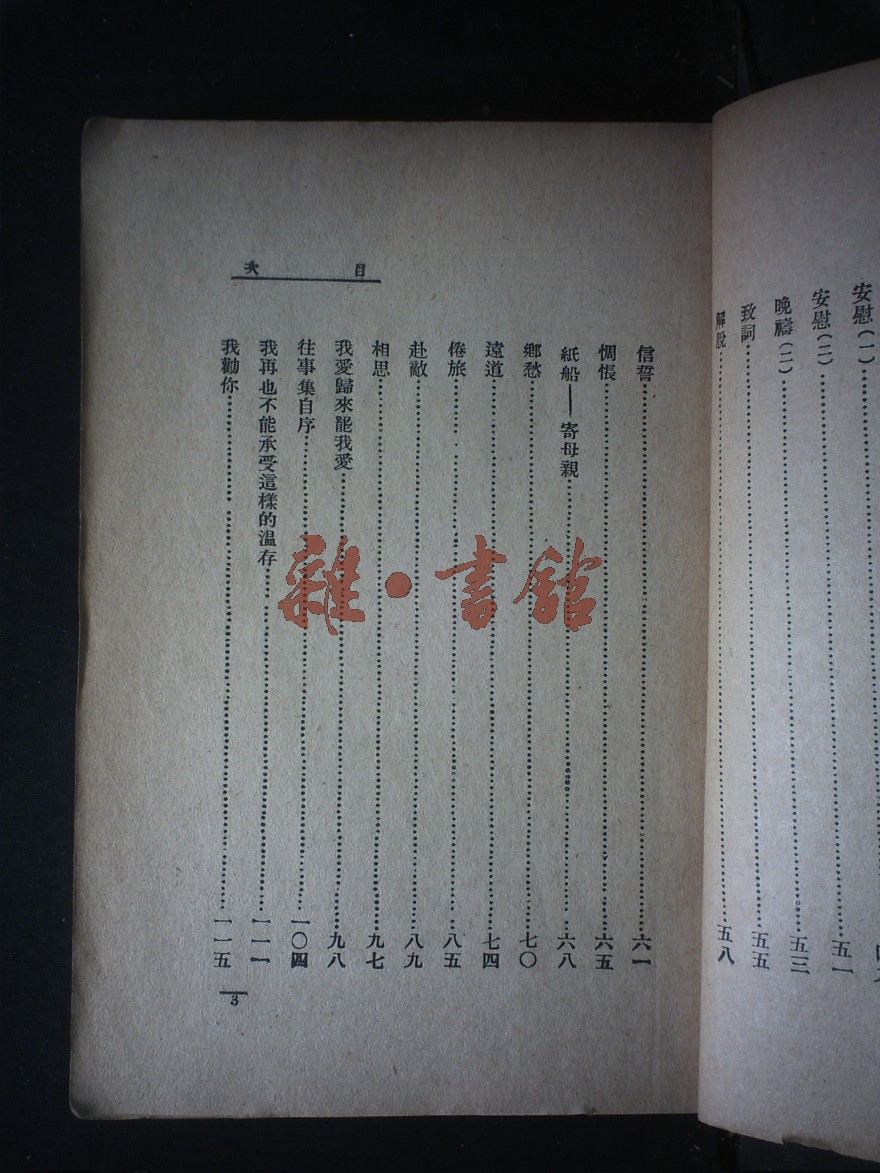 安慰（一）
安慰（二）……五一
晚禱（二）……五三
致詞……五五
解脫……五八
目次
信誓……六一
惆悵……六五
紙船——寄母親……六八
鄉愁……七〇
遠道……七四
倦旅……八五
赴敵……八九
相思……九七
我愛歸來罷我愛……九八
往事集自序……一〇四
我再也不能承受這樣的溫存……一一一
我勸你……一一五
3
雜·書館